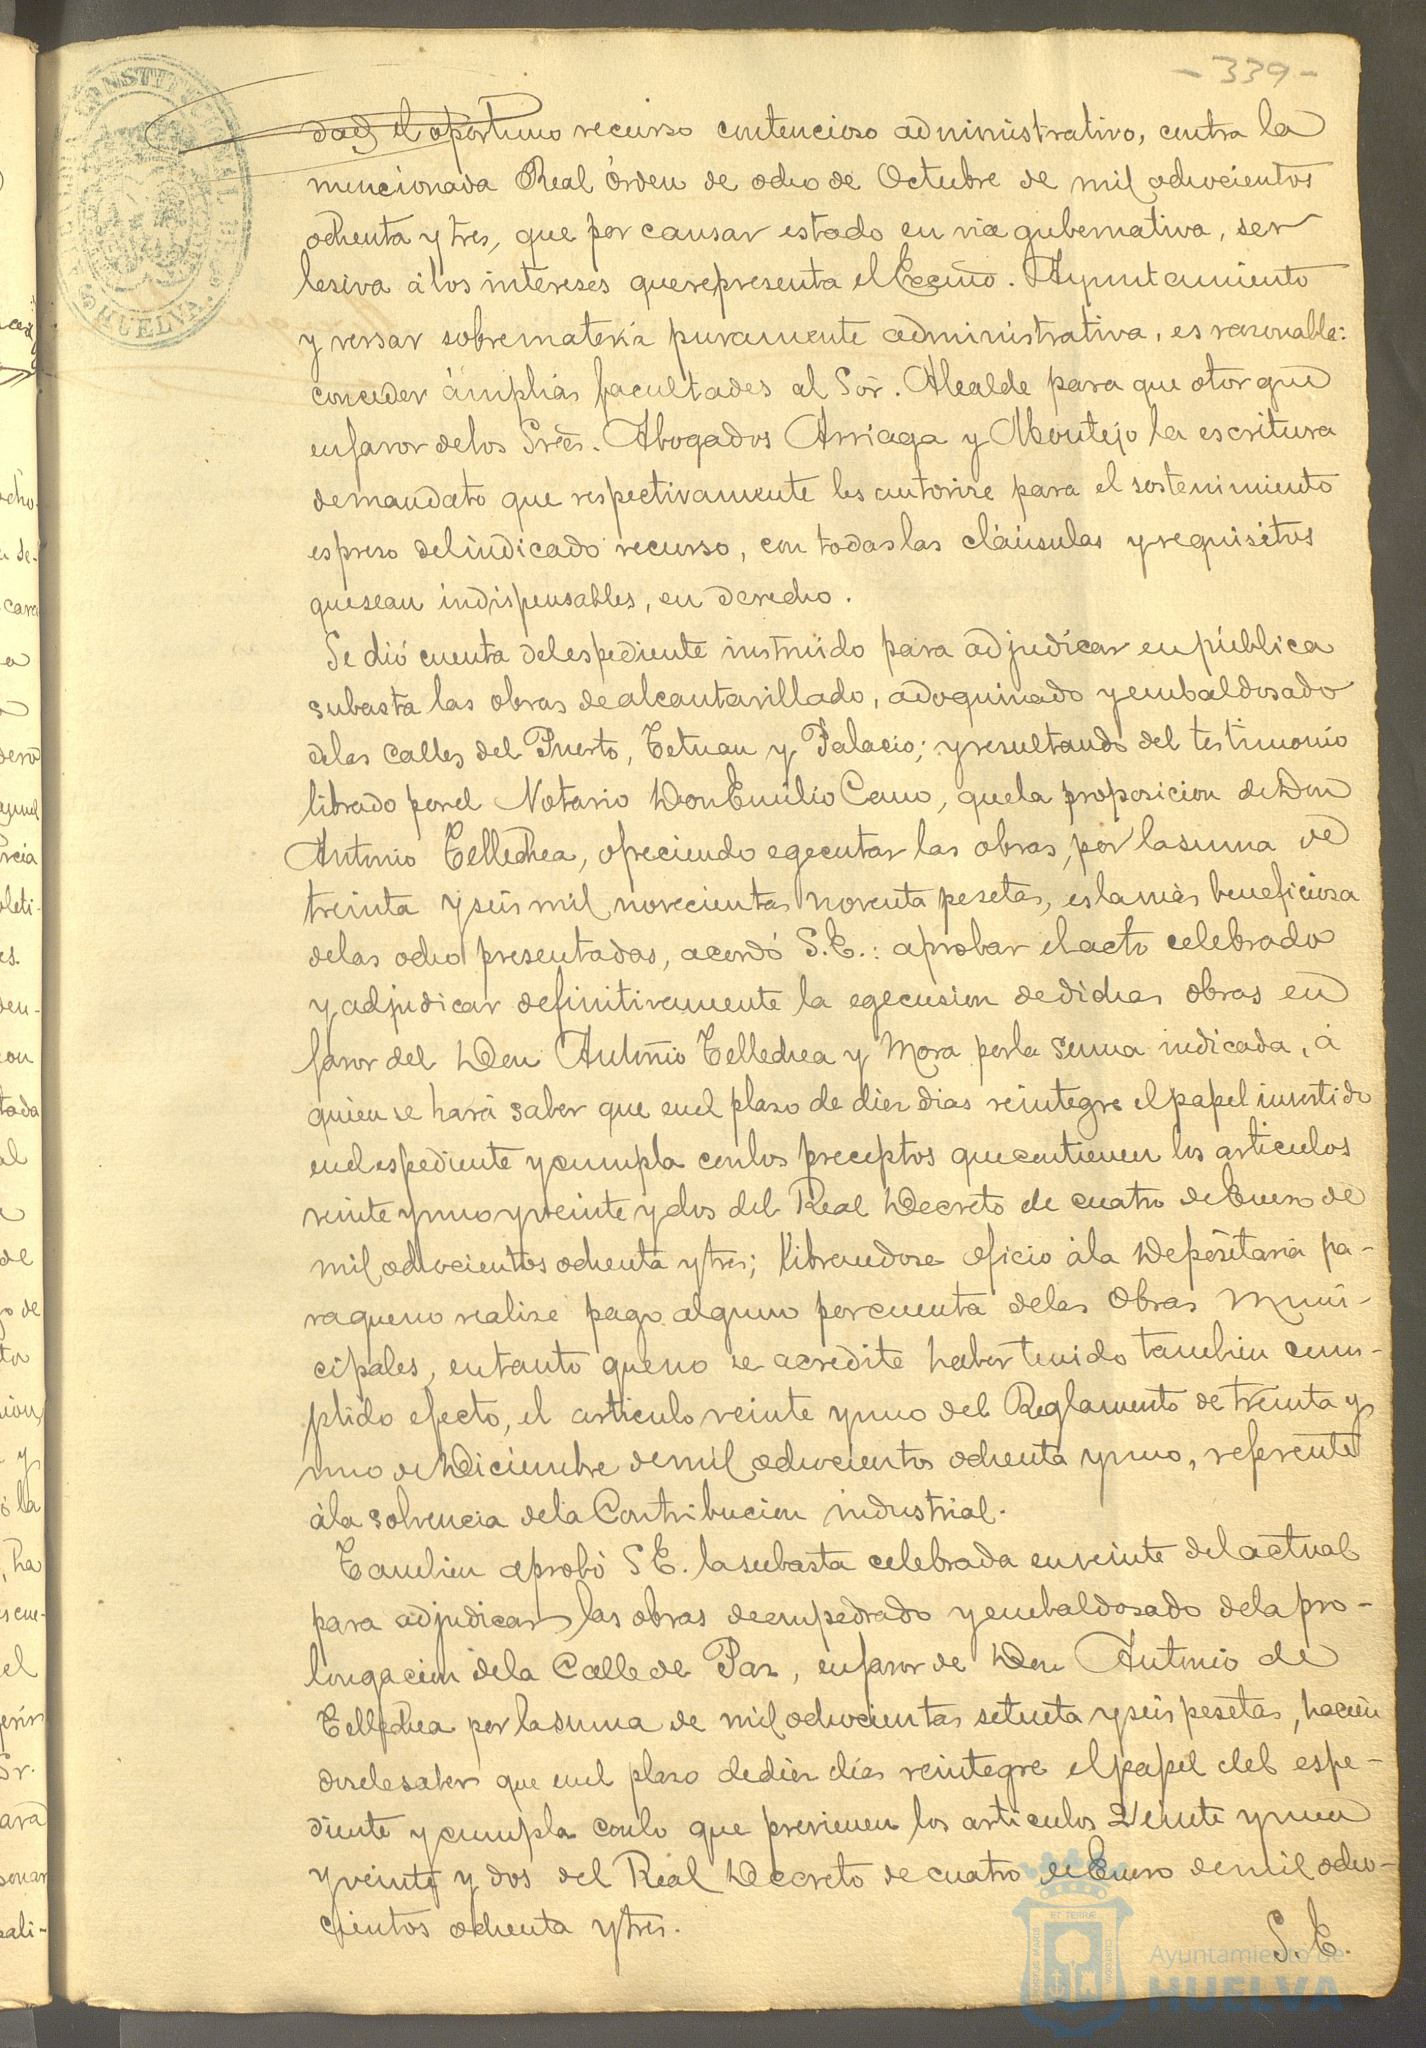 - 339 -
el oportuno recurso contencioso administrativo, contra la
mencionada Real órden de ocho de Octubre de mil ochocientos
ochenta y tres, que por causar estado en via gubernativa, ser
lesiva á los intereses que representa el Excmo. Ayuntamiento
y versar sobre materia puramente administrativa, es razonable:
conceder ámplias facultades al Sor. Alcalde para que otorgue
en favor de los Sres. Abogados Arriaga y Montejo la escritura
de mandato que respectivamente les autorize para el sostenimiento
espreso del indicado recurso, con todas las cláusulas y requisitos
que sean indispensables, en derecho.
Se dió cuenta del espediente instruido para adjudicar en pública
subasta las obras de alcantarillado, adoquinado y embaldosado
de las calles del Puerto, Tetuan y Palacio; y resultando del testimonio
librado por el Notario Don Emilio Cano, que la proposicion de Don
Antonio Tellechea, ofreciendo egecutar las obras, por la suma de
treinta y seis mil novecientas noventa pesetas, es la más beneficiosa
de las ocho presentadas, acordó S.E.: aprobar el acto celebrado
y adjudicar definitivamente la egecusion de dichas obras en
favor del Don Antonio Tellechea y Mora por la suma indicada, á
quien se hará saber que en el plazo de diez dias reintegre el papel invertido
en el espediente y cumpla con los preceptos que contienen los articulos
veinte y uno y veinte y dos del Real Decreto de cuatro de Enero de
mil ochocientos ochenta y tres; librandose oficio á la Depositaria pa-
ra que no realize pago alguno por cuenta de las Obras Muni-
cipales, en tanto que no se acredite haber tenido tambien cum-
plido efecto, el articulo veinte y uno del Reglamento de treinta y
uno de Diciembre de mil ochocientos ochenta y uno, referente
á la solvencia de la Contribucion industrial.
Tambien aprobó S E. la subasta celebrada en veinte del actual
para adjudicar las obras de empedrado y embaldosado de la pro-
longacion de la Calle de Paz, en favor de Don Antonio de
Tellechea por la suma de mil ochocientas setenta y seis pesetas, hacien
dosele saber que en el plazo de diez dias reintegre el papel del espe-
diente y cumpla con lo que previenen los articulos Veinte y uno
y veinte y dos del Real Decreto de cuatro de Enero de mil ocho-
cientos ochenta y tres.
S. E.
Ayuntamiento de
HUELVA